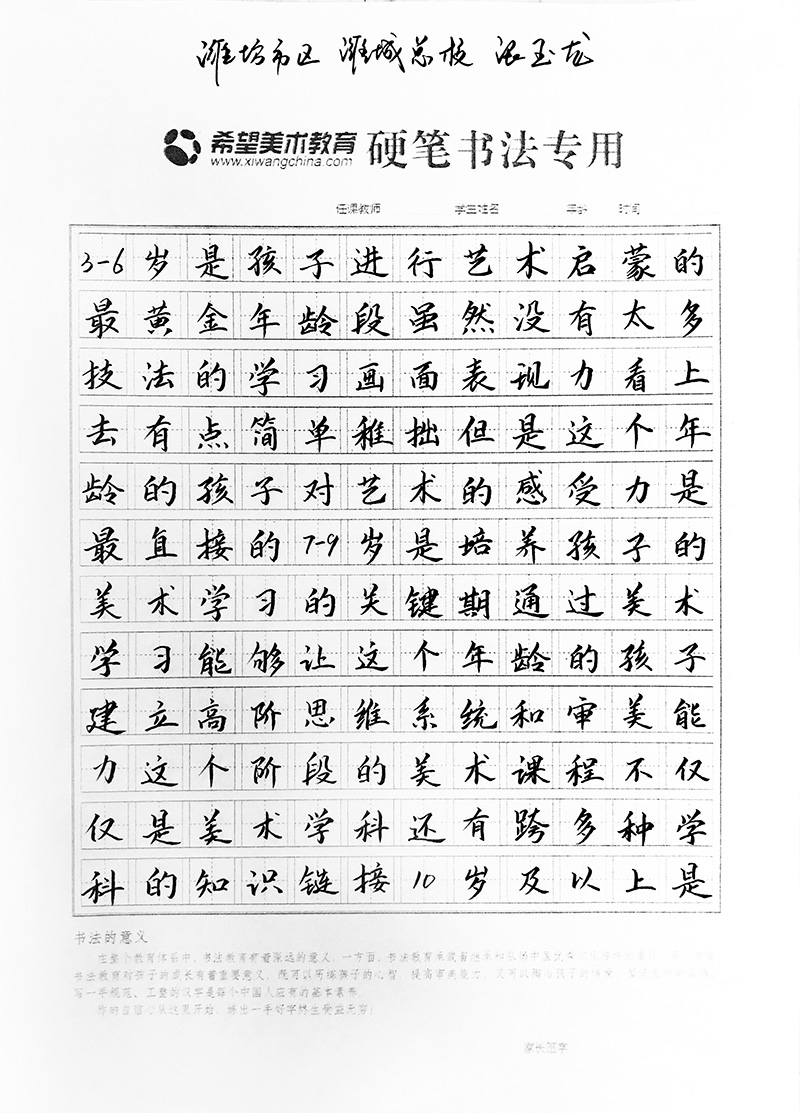 潍坊市区 潍城总校 张玉龙
希望美术教育 硬笔书法专用
www.xiwangchina.com
任课教师 学生姓名 年龄 时间
3-6岁是孩子进行艺术启蒙的
最黄金年龄段虽然没有太多
技法的学习画面表现力看上
去有点简单稚拙但是这个年
龄的孩子对艺术的感受力是
最直接的7-9岁是培养孩子的
美术学习的关键期通过美术
学习能够让这个年龄的孩子
建立高阶思维系统和审美能
力这个阶段的美术课程不仅
仅是美术学科还有跨多种学
科的知识链接10岁及以上是
书法的意义
在整个教育体系中，书法教育有着深远的意义，一方面，书法教育承载着继承和弘扬中国优
书法教育对孩子的成长有着重要意义，既可以历练孩子的心智，提高审美能力，又可以
写一手规范、工整的汉字是每个中国人应有的基本素养。
你的自信心从这里开始，练出一手好字终生受益无穷！
家长签字